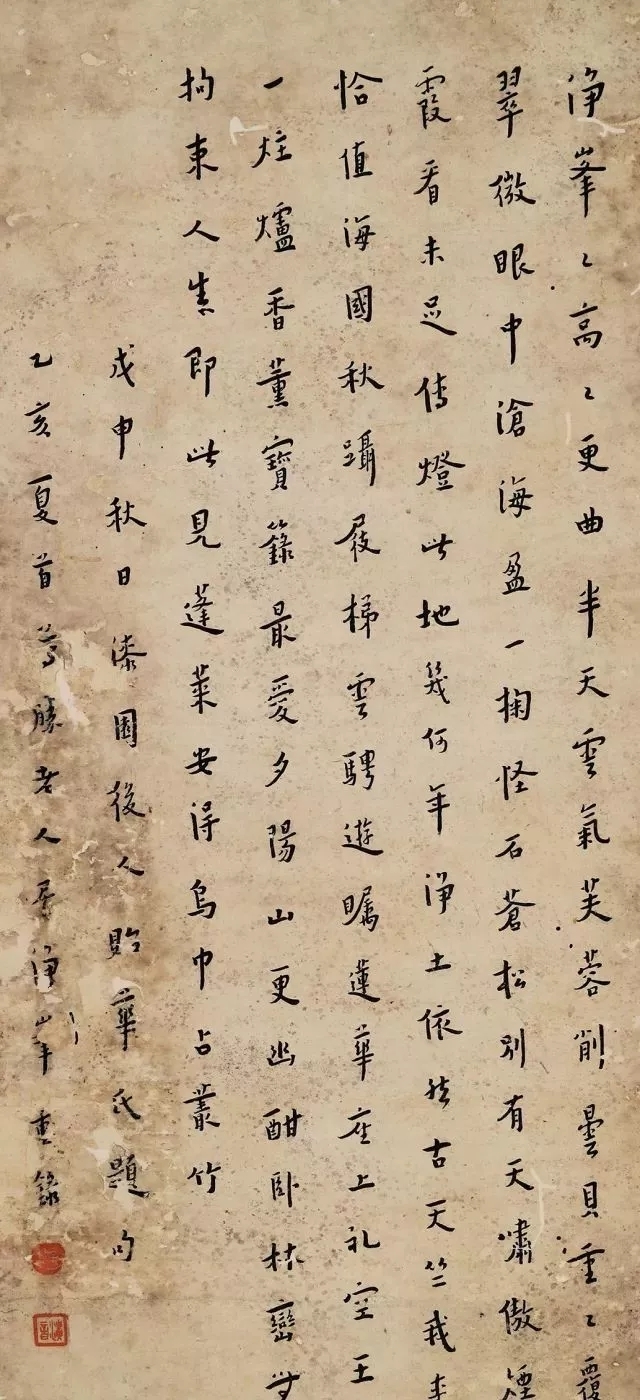 净峯〻高〻更曲半天雲氣芙蓉削曇貝重〻覆
翠微眼中滄海盈一掬怪石蒼松別有天嘯傲煙
霞看未足傳燈此地幾何年淨土依然古天竺我来
恰值海國秋躡屐梯雲騁遊矚蓮華座上礼空王
一炷爐香薰寶籙最愛夕陽山更幽酣卧林巒
拘束人生即此見蓬萊安得烏巾占叢竹
戊申秋日漆園後人貽華氏題句
乙亥夏首尊勝老人居淨峯重錄